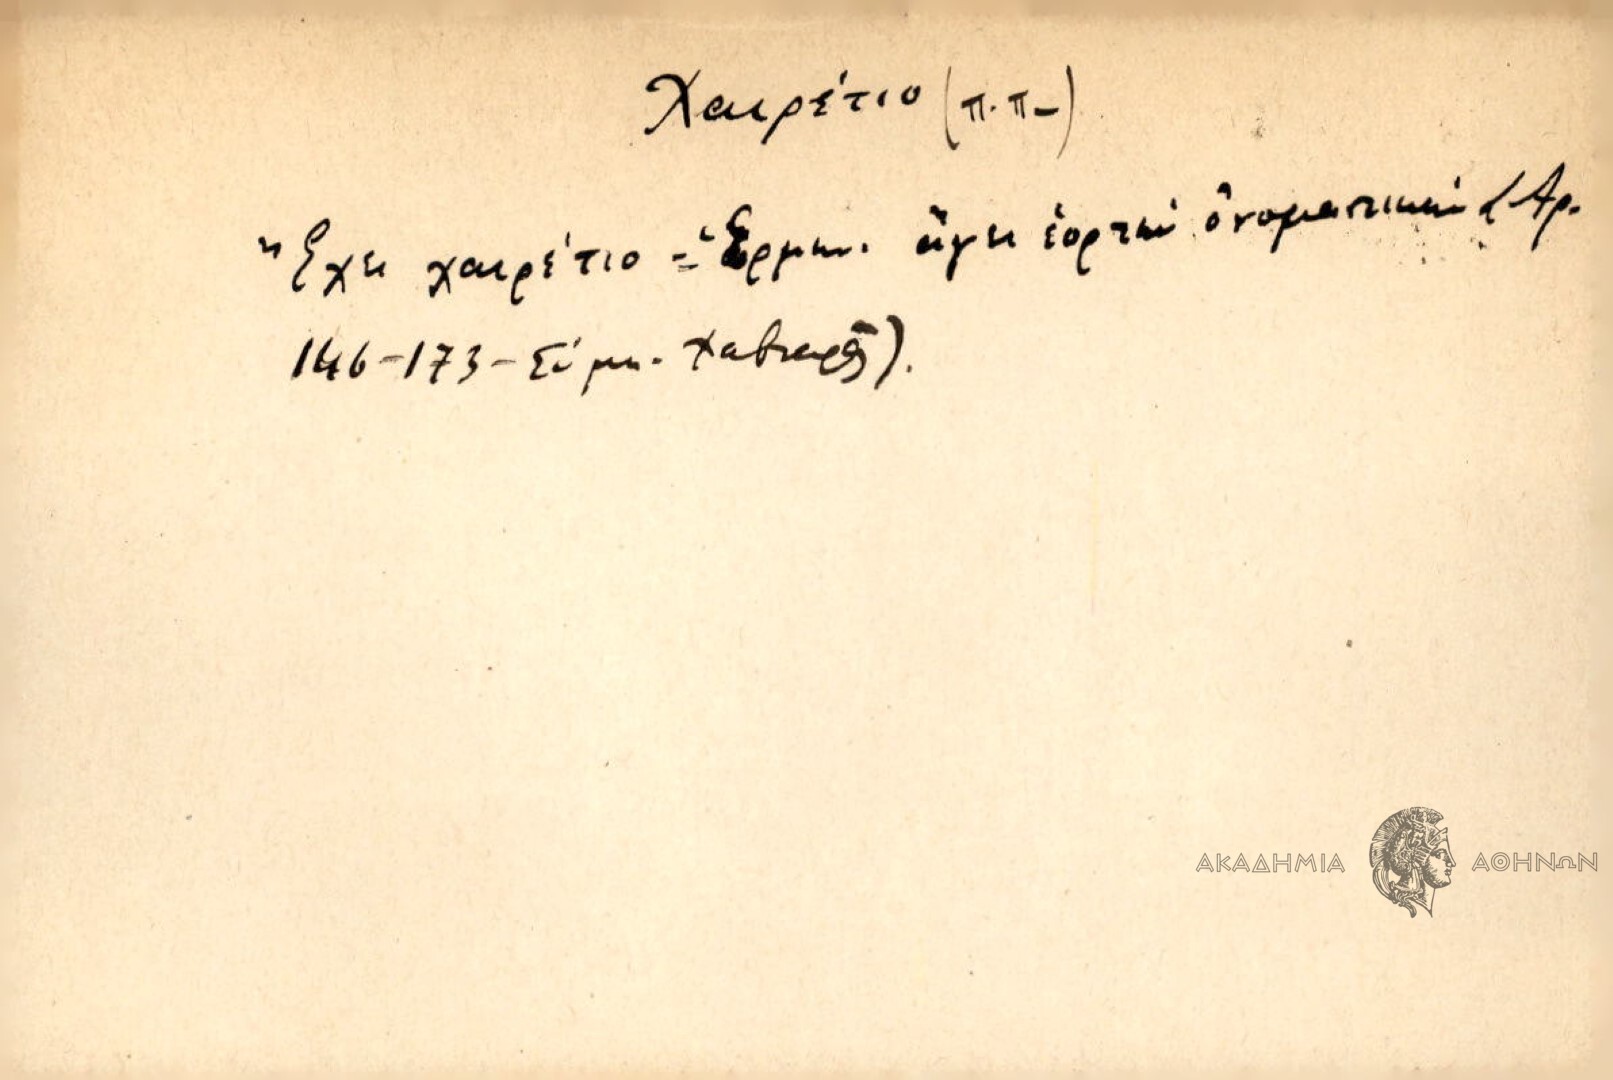 Χαιρέτιο (π.π-)
Ἔχει χαιρέτιο = Ἑρμην. ἄγει ἑορτὴν ὀνομαστικὴν (Ἀρ.
146-173-Σύμη. Χαβιαρᾶς).
ΑΚΑΔΗΜΙΑ ΑΘΗΝΩΝ